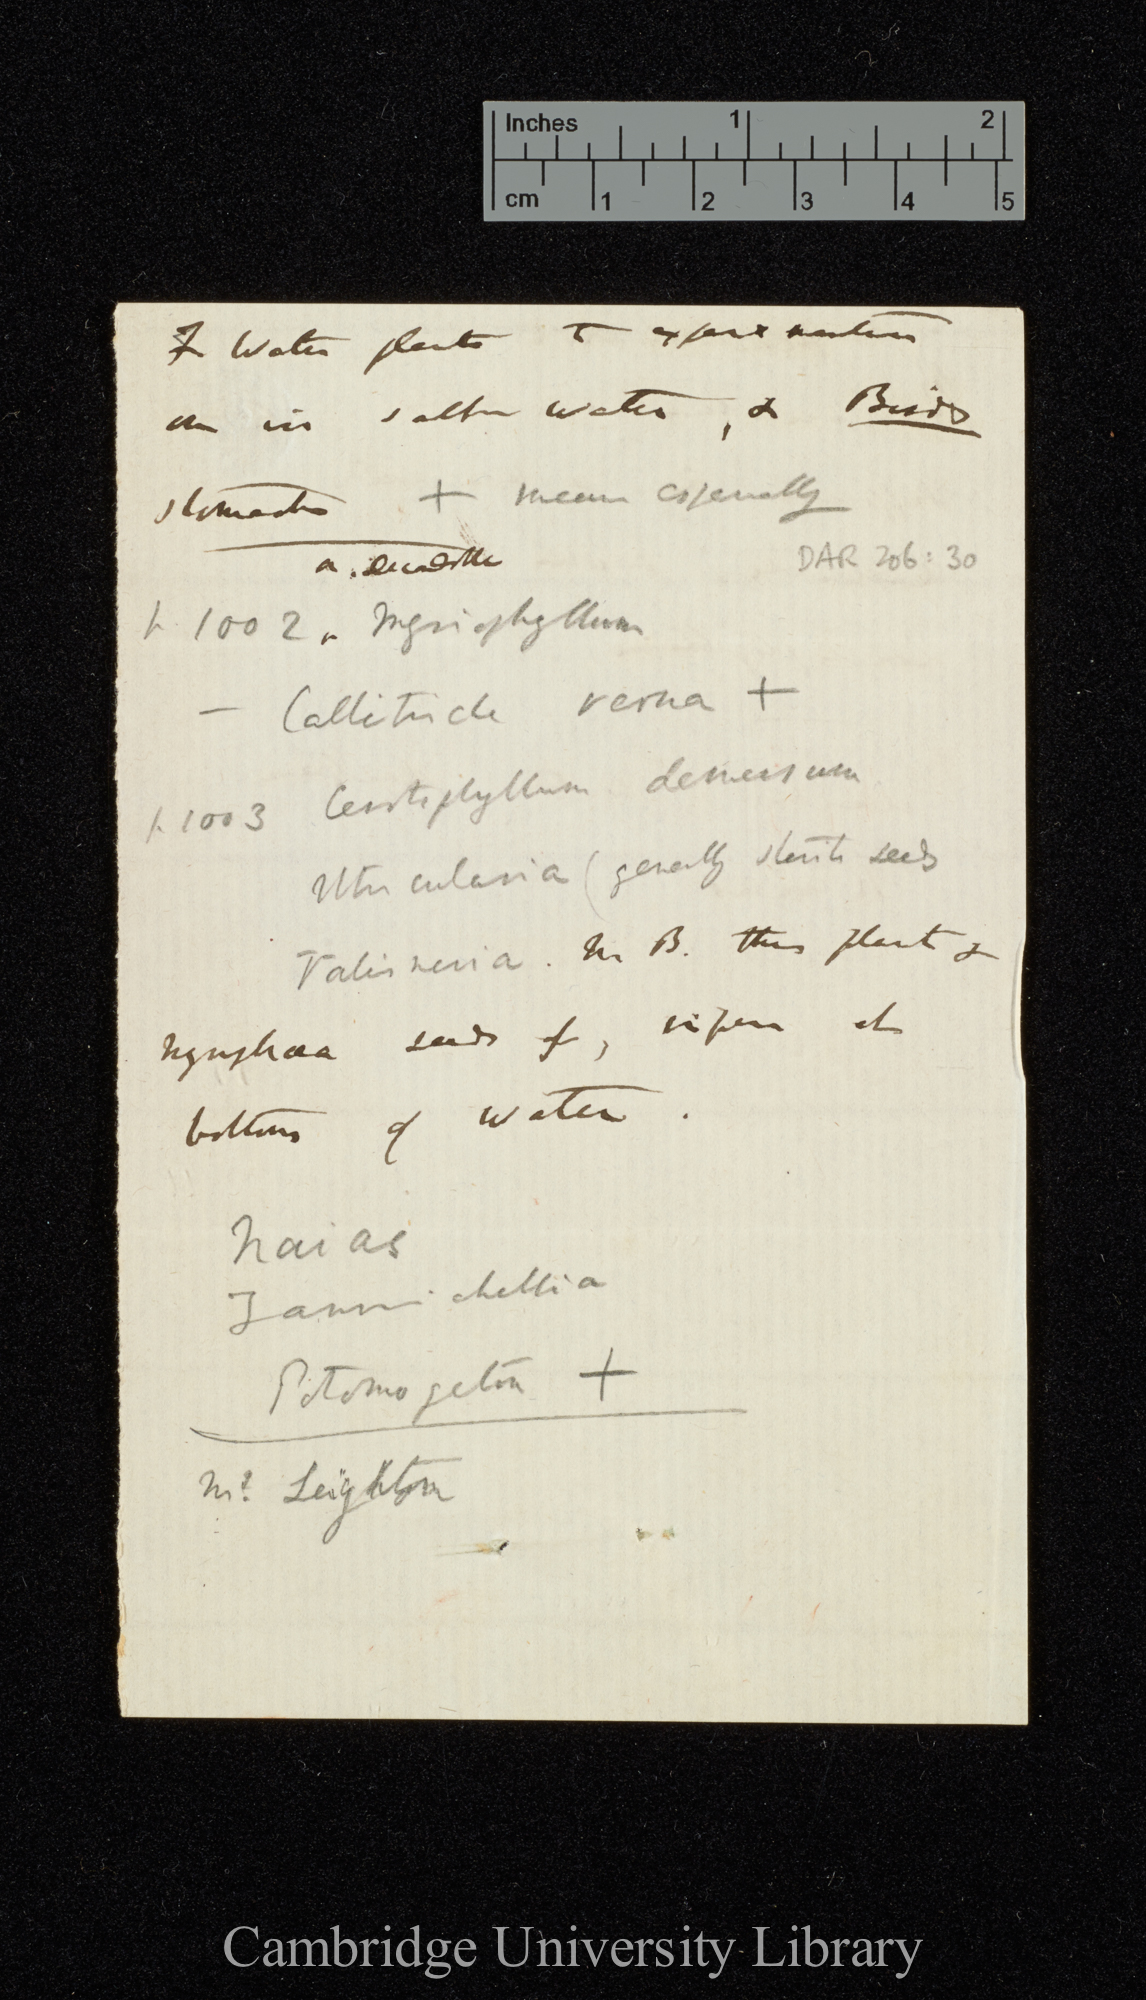 Inches 1 2
cm 1 2 3 4 5
Water plants to experimentise
on in salt water, & Birds
stomachs + means especially
DAR 206: 30
p. 1002. Myriophyllum
— Callitriche verna +
p. 1003 Ceratophyllum demersum
Utricularia (generally sterile seeds
Valisneria. N. B. this plant &
Nymphaea seeds of, ripen at
bottom of water.
Naias
Zannichellia
Potomogeton +
Mr. Leighton
Cambridge University Library